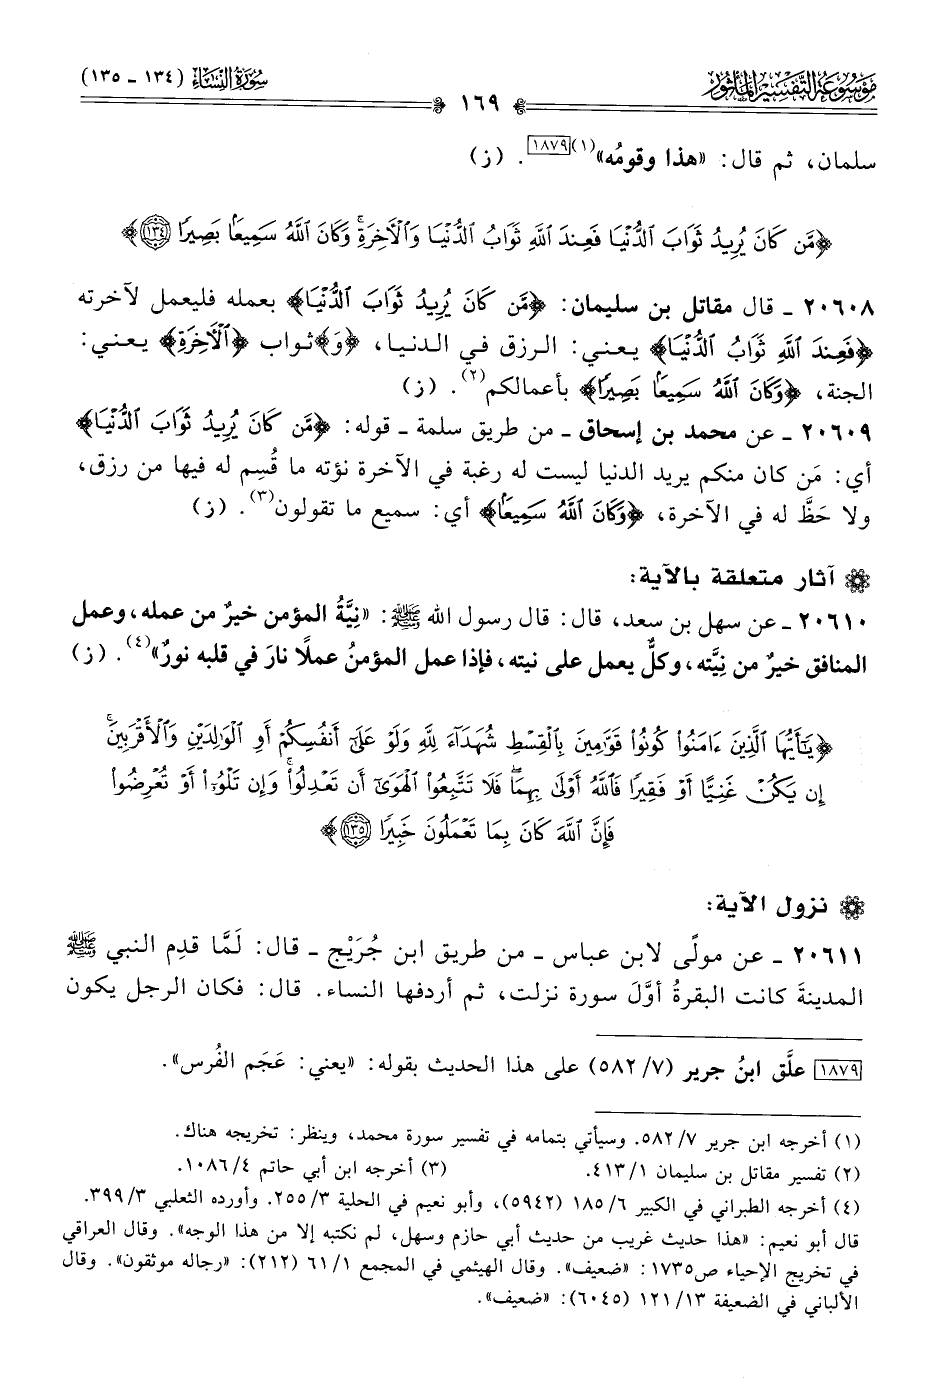 موسوعة التفسير المأثور
سورة النساء (١٣٤ - ١٣٥)
١٦٩
سلمان، ثم قال: «هذا وقومُه»(١)[١٨٧٩]. (ز)
﴿مَّن كَانَ يُرِيدُ ثَوَابَ ٱلدُّنۡيَا فَعِندَ ٱللَّهِ ثَوَابُ ٱلدُّنۡيَا وَٱلۡأٓخِرَةِۚ وَكَانَ ٱللَّهُ سَمِيعَۢا بَصِيرٗا ١٣٤﴾
٢٠٦٠٨ ـ قال مقاتل بن سليمان: ﴿مَّن كَانَ يُرِيدُ ثَوَابَ ٱلدُّنۡيَا﴾ بعمله فليعمل لآخرته
﴿فَعِندَ ٱللَّهِ ثَوَابُ ٱلدُّنۡيَا﴾ يعني: الرزق في الدنيا، ﴿وَ﴾ثواب ﴿ٱلۡأٓخِرَةِ﴾ يعني:
الجنة، ﴿وَكَانَ ٱللَّهُ سَمِيعَۢا بَصِيرٗا﴾ بأعمالكم(٢). (ز)
٢٠٦٠٩ ـ عن محمد بن إسحاق ـ من طريق سلمة ـ قوله: ﴿مَّن كَانَ يُرِيدُ ثَوَابَ ٱلدُّنۡيَا﴾
أي: مَن كان منكم يريد الدنيا ليست له رغبة في الآخرة نؤته ما قُسِم له فيها من رزق،
ولا حَظَّ له في الآخرة، ﴿وَكَانَ ٱللَّهُ سَمِيعَۢا﴾ أي: سميع ما تقولون(٣). (ز)
آثار متعلقة بالآية:
٢٠٦١٠ ـ عن سهل بن سعد، قال: قال رسول الله ﷺ: «نِيَّةُ المؤمن خيرٌ من عمله، وعمل
المنافق خيرٌ من نِيَّته، وكلٌّ يعمل على نيته، فإذا عمل المؤمنُ عملًا نارَ في قلبه نورٌ»(٤). (ز)
﴿يَٰٓأَيُّهَا ٱلَّذِينَ ءَامَنُواْ كُونُواْ قَوَّٰمِينَ بِٱلۡقِسۡطِ شُهَدَآءَ لِلَّهِ وَلَوۡ عَلَىٰٓ أَنفُسِكُمۡ أَوِ ٱلۡوَٰلِدَيۡنِ وَٱلۡأَقۡرَبِينَۚ
إِن يَكُنۡ غَنِيًّا أَوۡ فَقِيرٗا فَٱللَّهُ أَوۡلَىٰ بِهِمَاۖ فَلَا تَتَّبِعُواْ ٱلۡهَوَىٰٓ أَن تَعۡدِلُواْۚ وَإِن تَلۡوُۥٓاْ أَوۡ تُعۡرِضُواْ
فَإِنَّ ٱللَّهَ كَانَ بِمَا تَعۡمَلُونَ خَبِيرٗا ١٣٥﴾
نزول الآية:
٢٠٦١١ ـ عن مولًى لابن عباس ـ من طريق ابن جُرَيْج ـ قال: لَمَّا قدِم النبي ﷺ
المدينةَ كانت البقرةُ أوَّلَ سورة نزلت، ثم أردفها النساء. قال: فكان الرجل يكون
[١٨٧٩] علَّق ابنُ جرير (٧/ ٥٨٢) على هذا الحديث بقوله: «يعني: عَجَم الفُرس».
(١) أخرجه ابن جرير ٧/ ٥٨٢. وسيأتي بتمامه في تفسير سورة محمد، وينظر: تخريجه هناك.
(٢) تفسير مقاتل بن سليمان ١/ ٤١٣. (٣) أخرجه ابن أبي حاتم ٤/ ١٠٨٦.
(٤) أخرجه الطبراني في الكبير ٦/ ١٨٥ (٥٩٤٢)، وأبو نعيم في الحلية ٣/ ٢٥٥. وأورده الثعلبي ٣/ ٣٩٩.
قال أبو نعيم: «هذا حديث غريب من حديث أبي حازم وسهل، لم نكتبه إلا من هذا الوجه». وقال العراقي
في تخريج الإحياء ص١٧٣٥: «ضعيف». وقال الهيثمي في المجمع ١/ ٦١ (٢١٢): «رجاله موثقون». وقال
الألباني في الضعيفة ١٣/ ١٢١ (٦٠٤٥): «ضعيف».